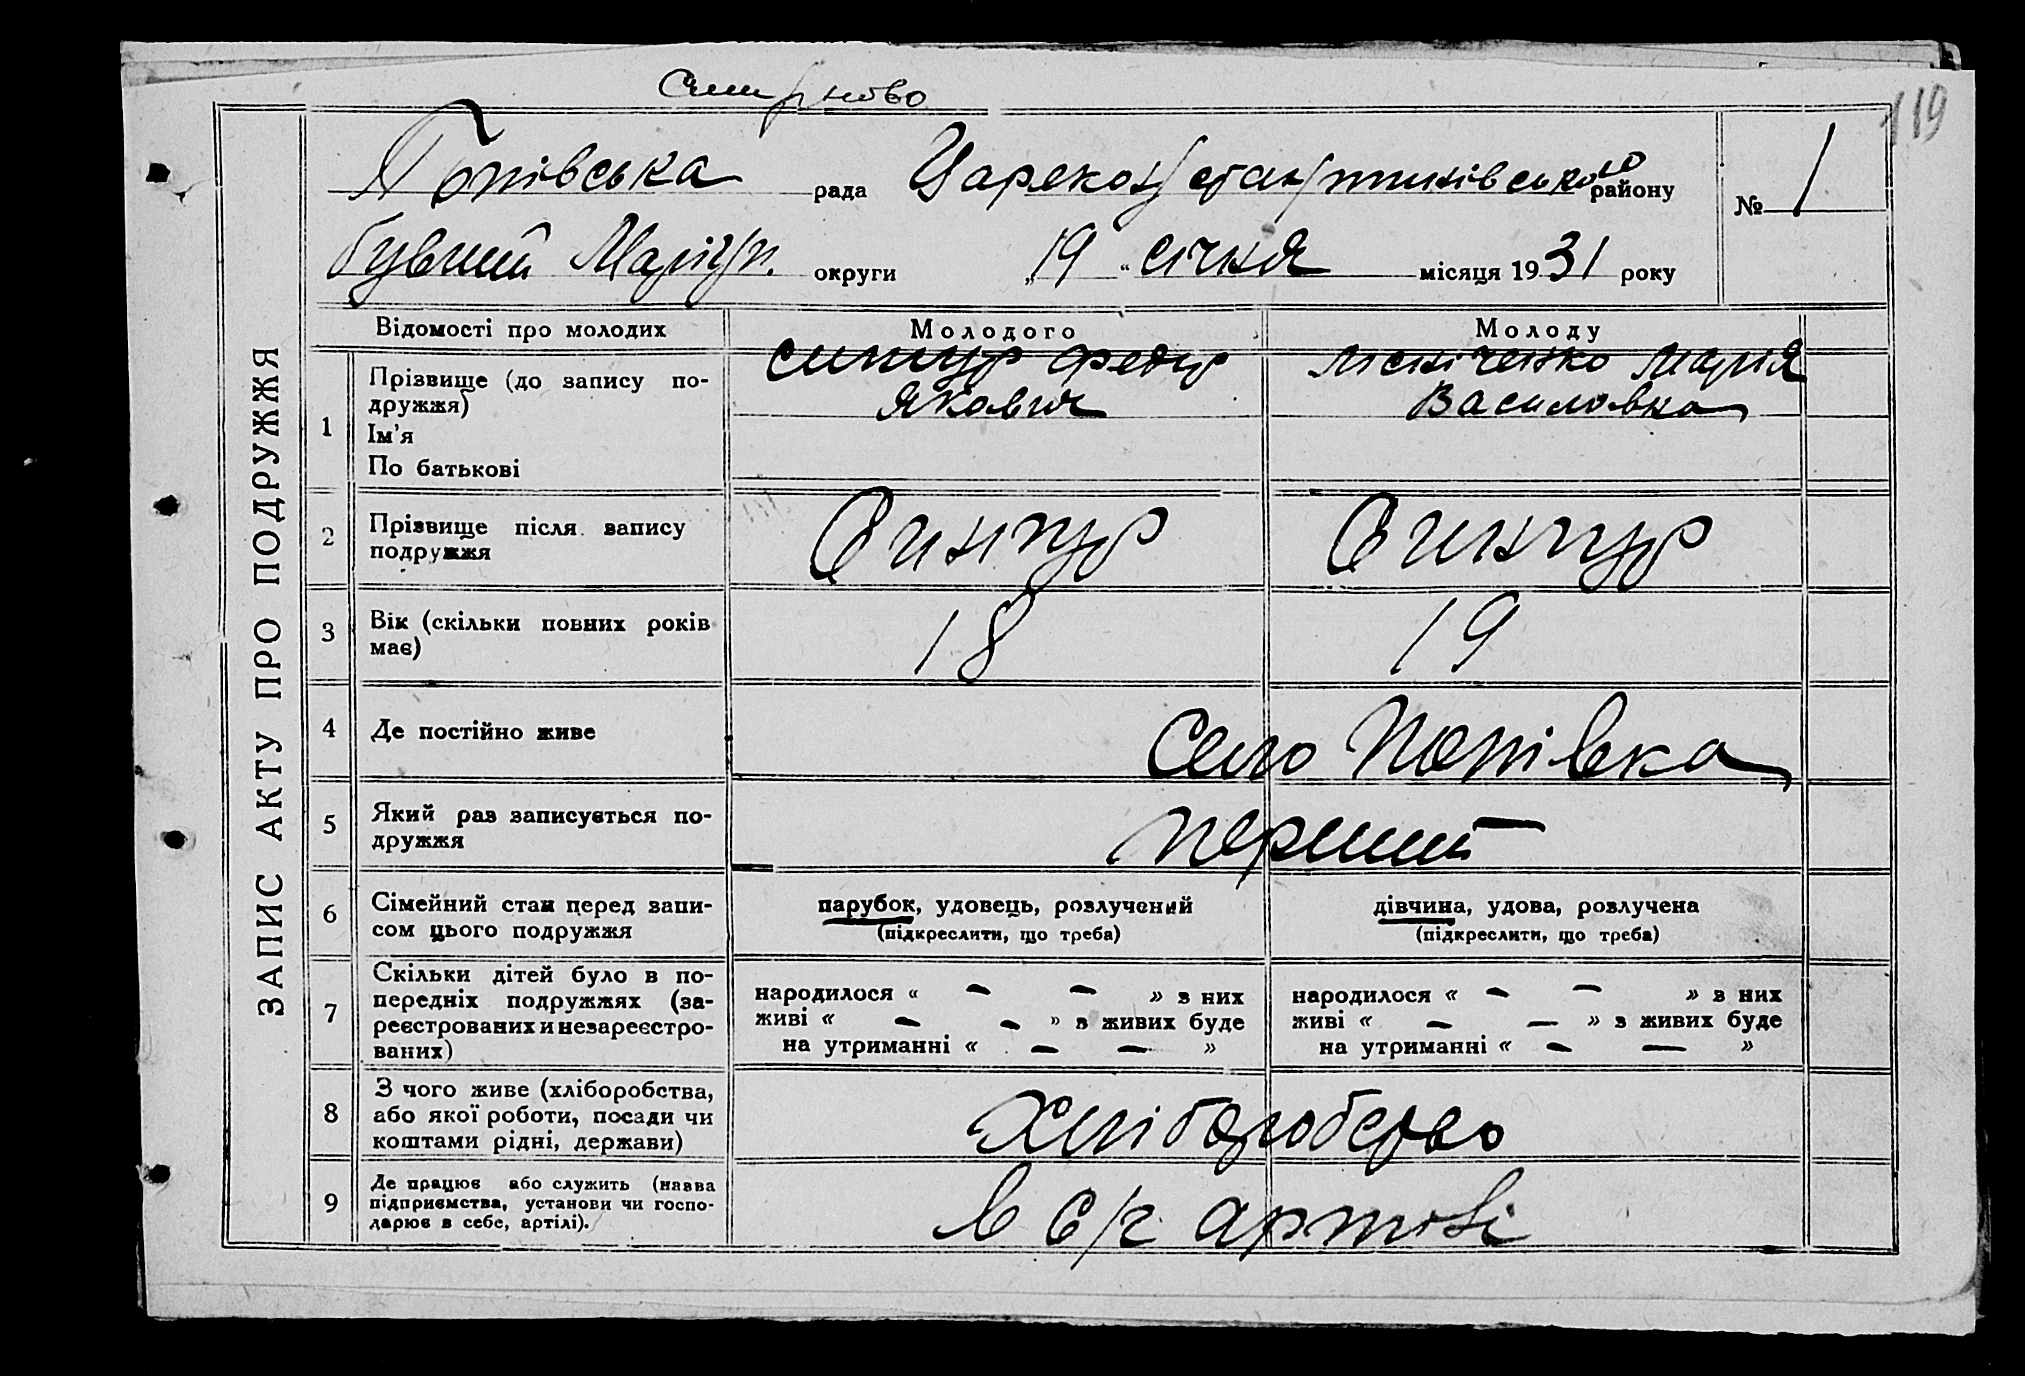 119
Попівська рада Царекостантинівського району № 1
бувший Маріуп. округи „19“ січня місяця 1931 року
ЗАПИС АКТУ ПРО ПОДРУЖЖЯ
Відомості про молодих Молодого Молоду
1 Прізвище (до запису по-
дружжя)
Ім'я
По батькові
Сингур Федір
Якович
Марія
Василовна
2 Прізвище після запису
подружжя
Сингур Сингур
3 Вік (скільки повних років
має)
18 19
4 Де постійно живе Село Попівка
5 Який раз записується по-
дружжя
перший
6 Сімейний стан перед запи-
сом цього подружжя
парубок, удовець, розлучений
(підкреслити, що треба)
дівчина, удова, розлучена
(підкреслити, що треба)
7 Скільки дітей було в по-
передніх подружжях (за-
реєстрованих и незареєстро-
ваних)
народилося « — — » з них
живі « — — » з живих буде
на утриманні « — — »
народилося « — — » з них
живі « — — » з живих буде
на утриманні « — — »
8 З чого живе (хліборобства,
або якої роботи, посади чи
коштами рідні, держави)
Хліборобство
9 Де працює або служить (назва
підприємства, установи чи госпо-
дарює в себе, артілі).
в с/г артілі